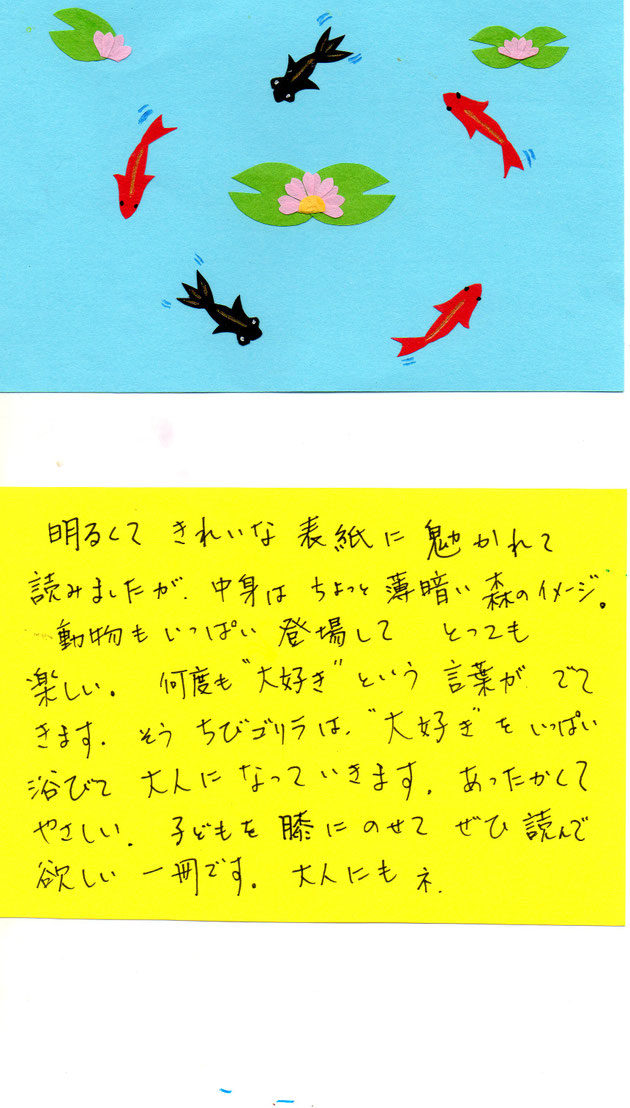 明るくて きれいな 表紙に 魅かれて
読みましたが、中身は ちょっと 薄暗い 森のイメージ。
動物も いっぱい 登場して とっても
楽しい。 何度も "大好き" という 言葉が でて
きます。 そう ちびゴリラは、"大好き" を いっぱい
浴びて 大人に なって いきます。 あったかくて
やさしい。 子どもを 膝に のせて ぜひ 読んで
欲しい 一冊です。 大人にも ネ.